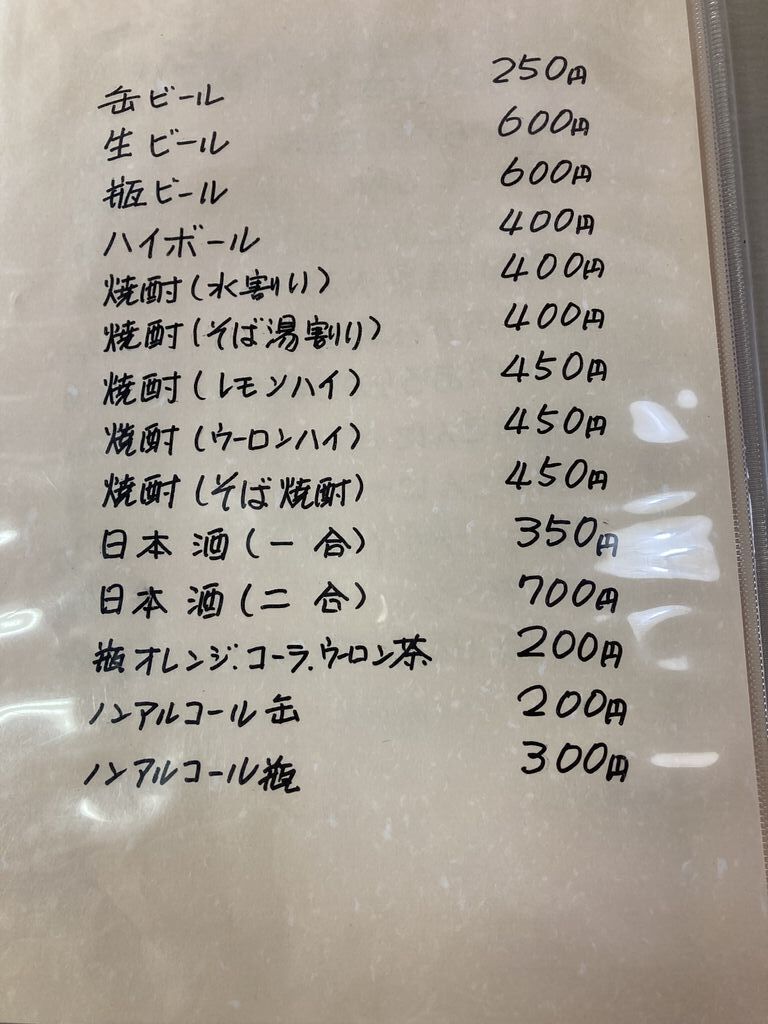 缶ビール 250円
生ビール 600円
瓶ビール 600円
ハイボール 400円
焼酎(水割り) 400円
焼酎(そば湯割り) 400円
焼酎(レモンハイ) 450円
焼酎(ウーロンハイ) 450円
焼酎(そば焼酎) 450円
日本酒(一合) 350円
日本酒(二合) 700円
瓶オレンジ.コーラ.ウーロン茶 200円
ノンアルコール缶 200円
ノンアルコール瓶 300円